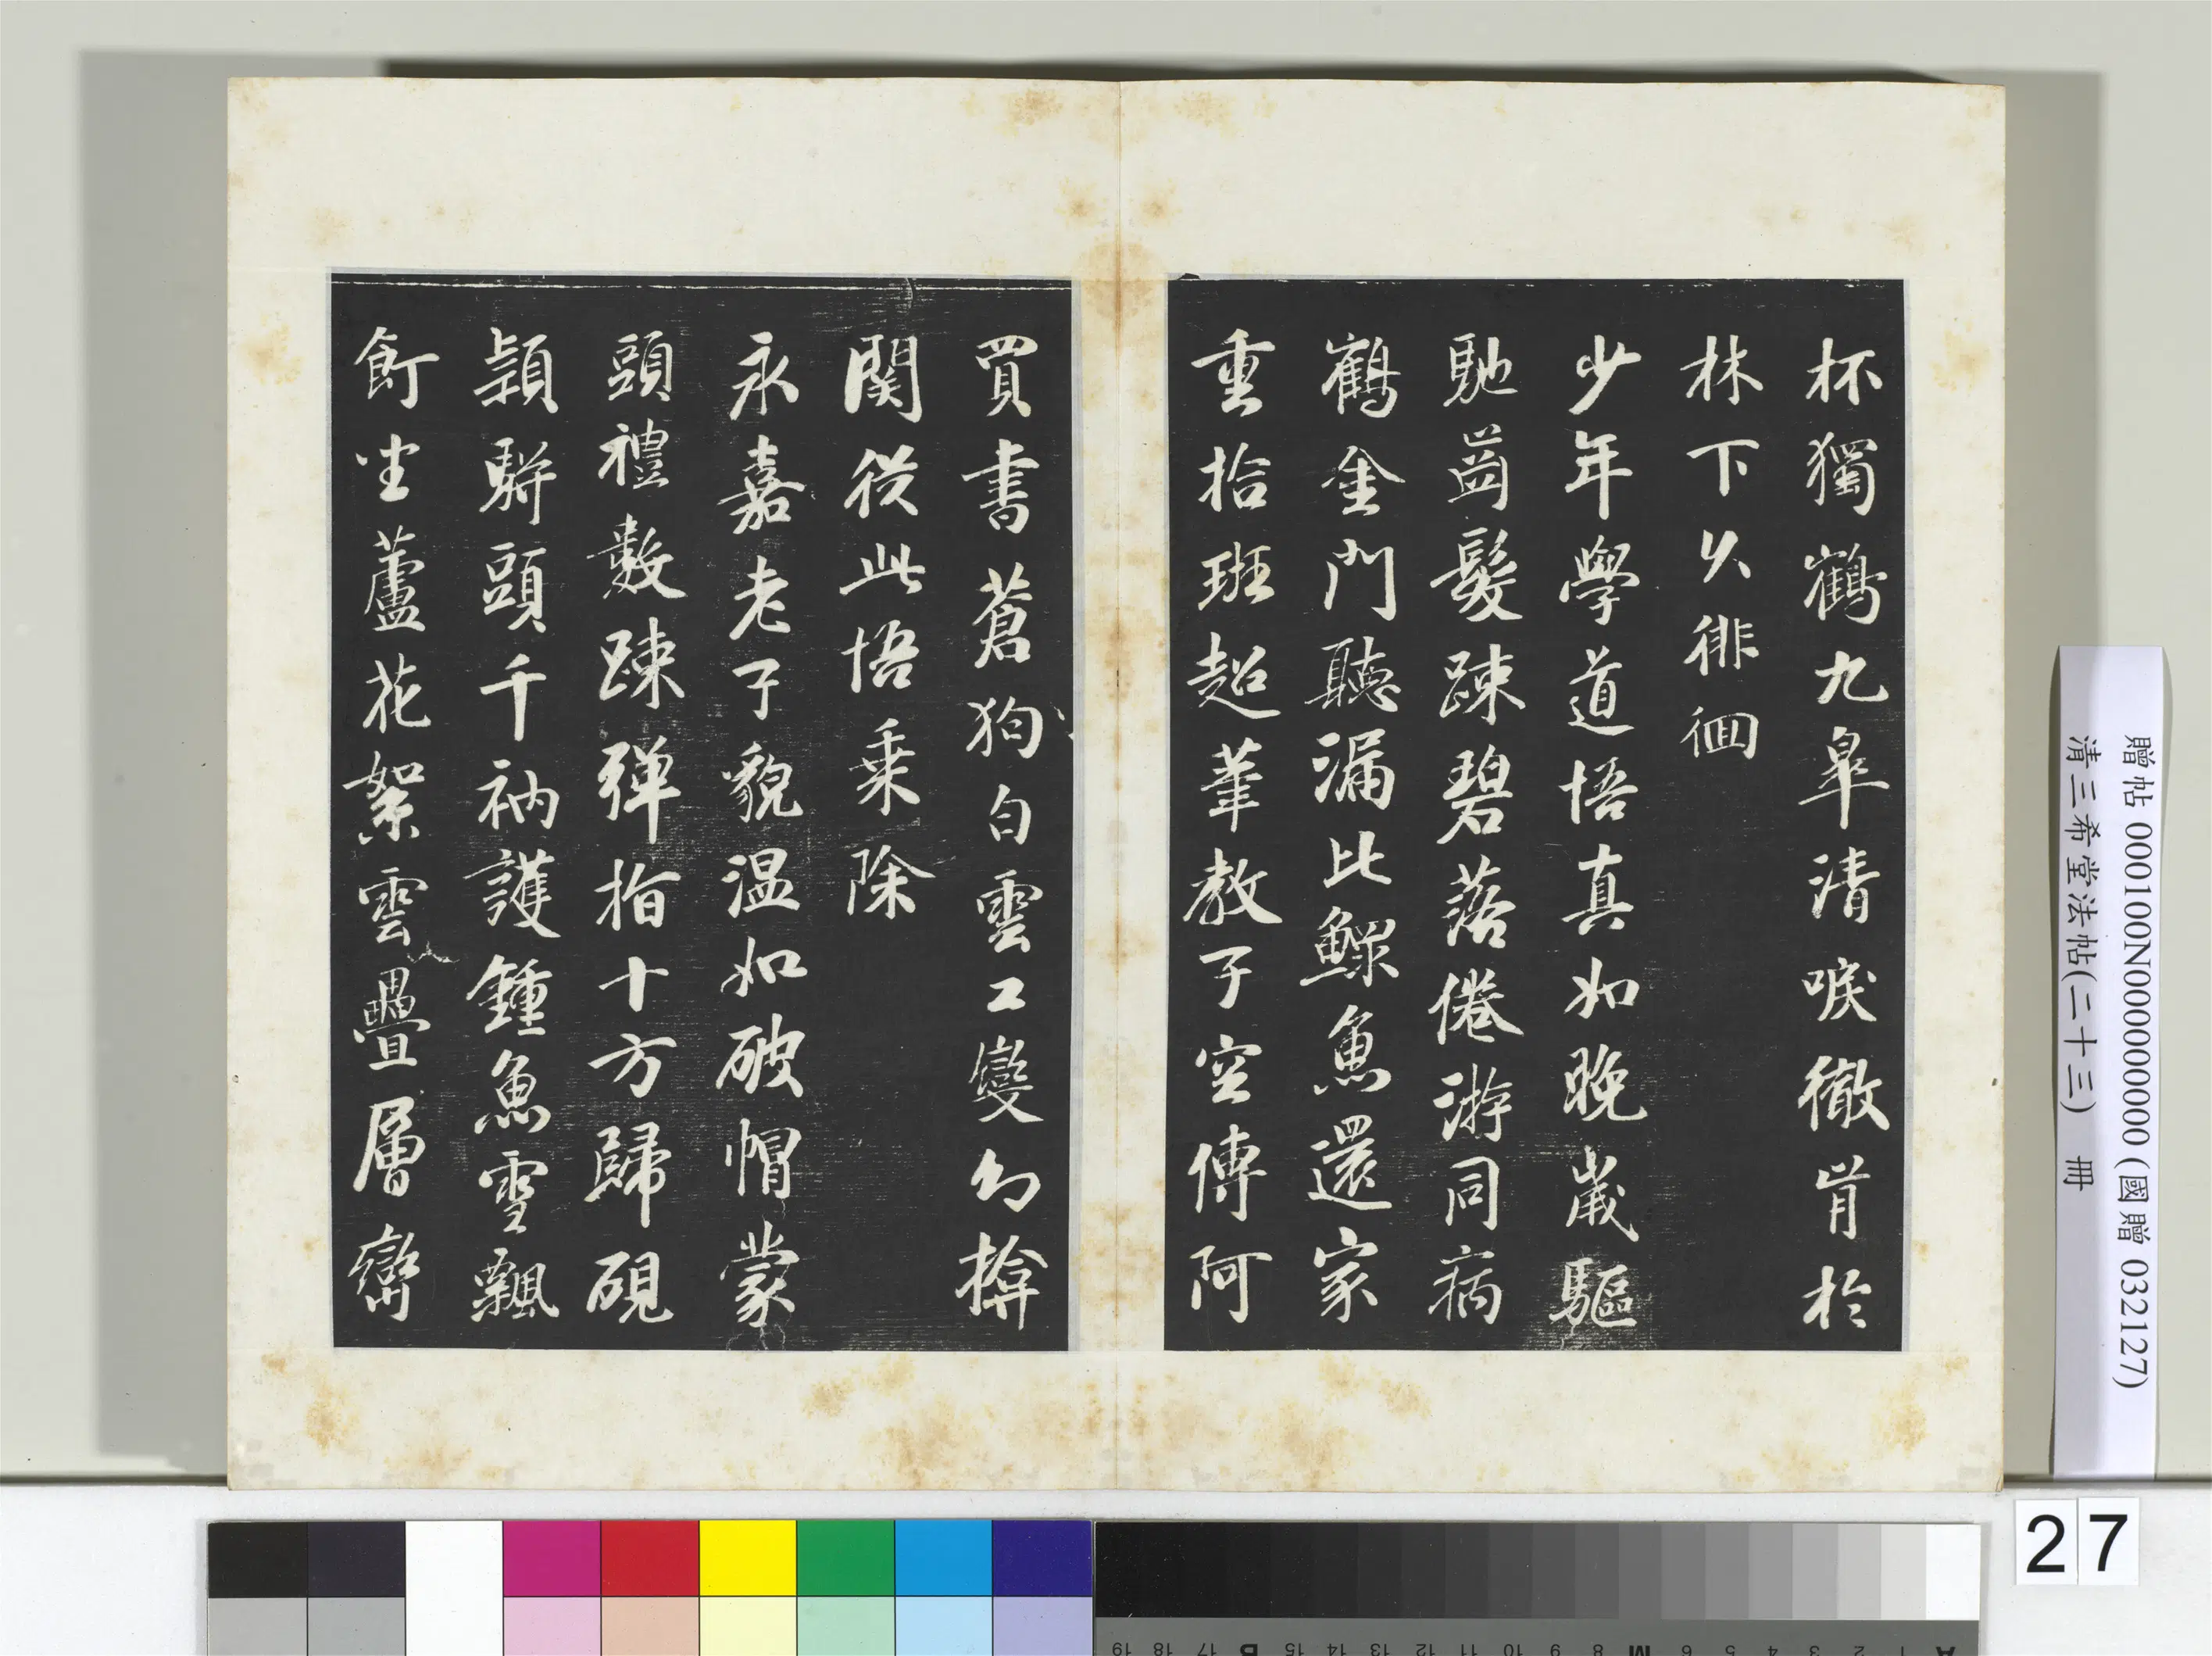 杯獨鶴九皋清唳徹肯於
林下久徘徊
少年學道悟真如晚歲驅
馳齒髮踈碧落倦游同病
鶴金門聽漏比鰥魚還家
重拾班超筆教子空傳阿
買書蒼狗白雲工變幻揜
関従此悟乗除
永嘉老子貌温如破帽蒙
頭禮數踈弹指十方歸硯
頴駢頭千衲護鍾魚雪飄
飣坐蘆花絮雲疊層巒
贈帖 000100N000000000 (國贈 032127)
清三希堂法帖(二十三) 冊
27